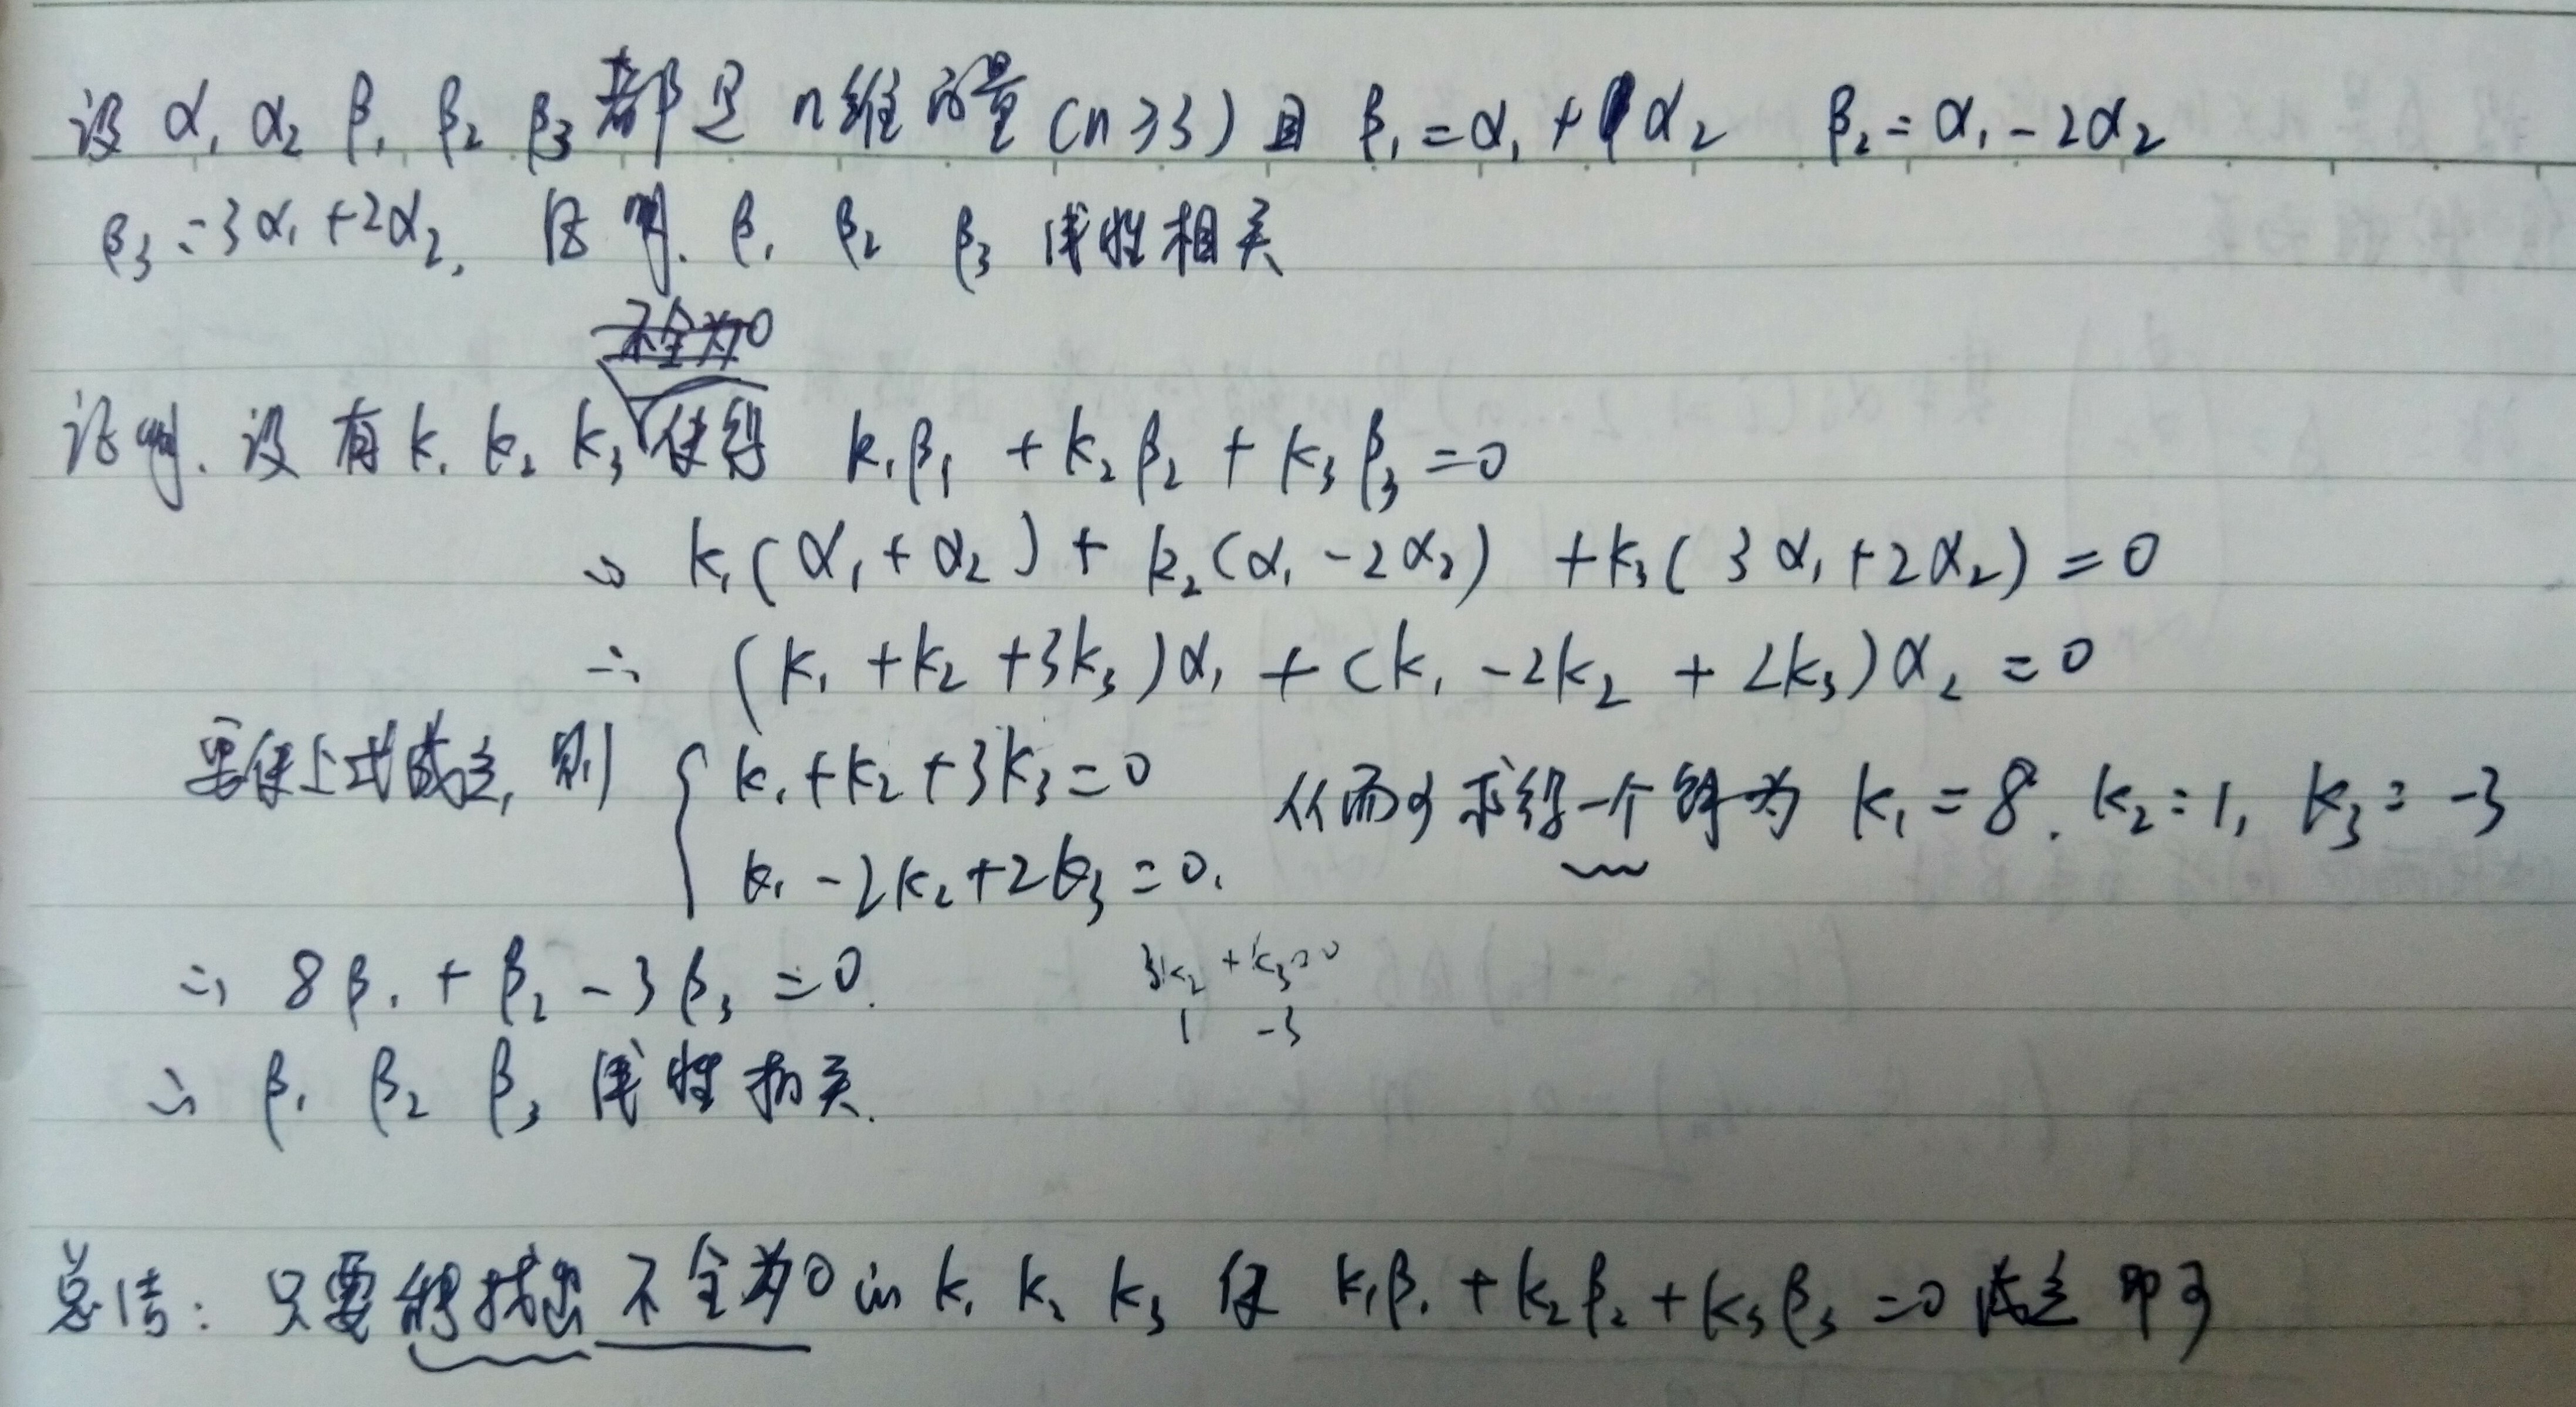 设 α₁ α₂ β₁ β₂ β₃ 都是 n维向量 (n≥3) 且 β₁=α₁+α₂ β₂=α₁-2α₂
β₃=3α₁+2α₂, 证明. β₁ β₂ β₃ 线性相关
不全为0
证明. 设有 k₁ k₂ k₃ 使得 k₁β₁+k₂β₂+k₃β₃=0
∴ k₁(α₁+α₂)+k₂(α₁-2α₂)+k₃(3α₁+2α₂)=0
∴ (k₁+k₂+3k₃)α₁+(k₁-2k₂+2k₃)α₂=0
要使上式成立, 则 { k₁+k₂+3k₃=0 从而可求得一个解为 k₁=8. k₂=1, k₃=-3
k₁-2k₂+2k₃=0.
∴ 8β₁+β₂-3β₃=0.
3k₂+k₃=0
1 -3
∴ β₁ β₂ β₃ 线性相关.
总结: 只要能找出不全为0的 k₁ k₂ k₃ 使 k₁β₁+k₂β₂+k₃β₃=0 成立即可